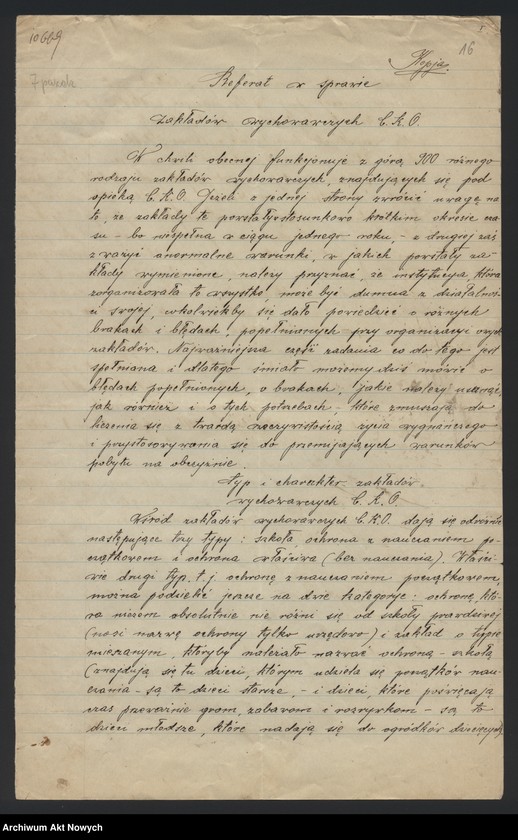 10669
16
Kopja.
Referat w sprawie
zakładów wychowawczych C.K.O.
W chwili obecnej funkcjonuje z górą 900 różnego
rodzaju zakładów wychowawczych, znajdujących się pod
opieką C.K.O. Jeżeli z jednej strony zwrócić uwagę na
to, że zakłady te powstały w stosunkowo krótkim okresie cza-
su – bo niespełna w ciągu jednego roku, – z drugiej zaś
zważyć anormalne warunki, w jakich powstały za-
kłady wymienione, należy przyznać, że instytucja, która
zorganizowała to wszystko, może być dumna z działalnoś-
ci swojej, cokolwiekby się dało powiedzieć o różnych
brakach i błędach, popełnionych przy organizacji
zakładów. Najważniejsza część zadania co do tego jest
spełniana i dlatego śmiało możemy dziś mówić o
błędach popełnionych, o brakach, jakie należy usunąć,
jak również i o tych potrzebach, które zmuszają do
liczenia się z twardą rzeczywistością życia wygnańczego
i przystosowywania się do przemijających warunków
pobytu na obczyźnie.
Typ i charakter zakładów
wychowawczych C.K.O.
Wśród zakładów wychowawczych C.K.O. dają się odróżnić
następujące trzy typy: szkoła, ochrona z nauczaniem po-
czątkowem i ochrona właściwa (bez nauczania). Właści-
wie drugi typ, t.j. ochronę z nauczaniem początkowem,
można podzielić jeszcze na dwie kategorje: ochronę, któ-
ra niczem absolutnie nie różni się od szkoły prawdziwej
(nosi nazwę ochrony tylko urzędowo) i zakład o typie
mieszanym, któryby należało nazwać ochroną – szkołą
(znajdują się tu dzieci, którym udziela się początków nau-
czania – są to dzieci starsze, – i dzieci, które poświęcają
czas przeważnie grom, zabawom i rozrywkom – są to
dzieci młodsze, które nadają się do ogródków dziecięcych
Archiwum Akt Nowych